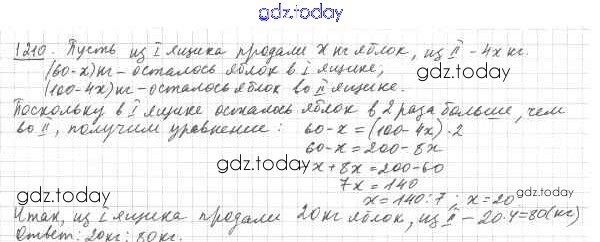 gdz.today
1210. Пусть из I ящика продали x кг яблок, из II - 4x кг.
(60-x) кг - осталось яблок в I ящике;
(100-4x) кг - осталось яблок во II ящике.
gdz.today
Поскольку в I ящике осталось яблок в 2 раза больше, чем
во II, получим уравнение: 60-x=(100-4x)·2
60-x=200-8x
gdz.today
x+8x=200-60
7x=140
gdz.today
x=140:7; x=20
gdz.today
Итак, из I ящика продали 20 кг яблок, из II - 20·4=80(кг)
Ответ: 20кг; 80кг.
gdz.today